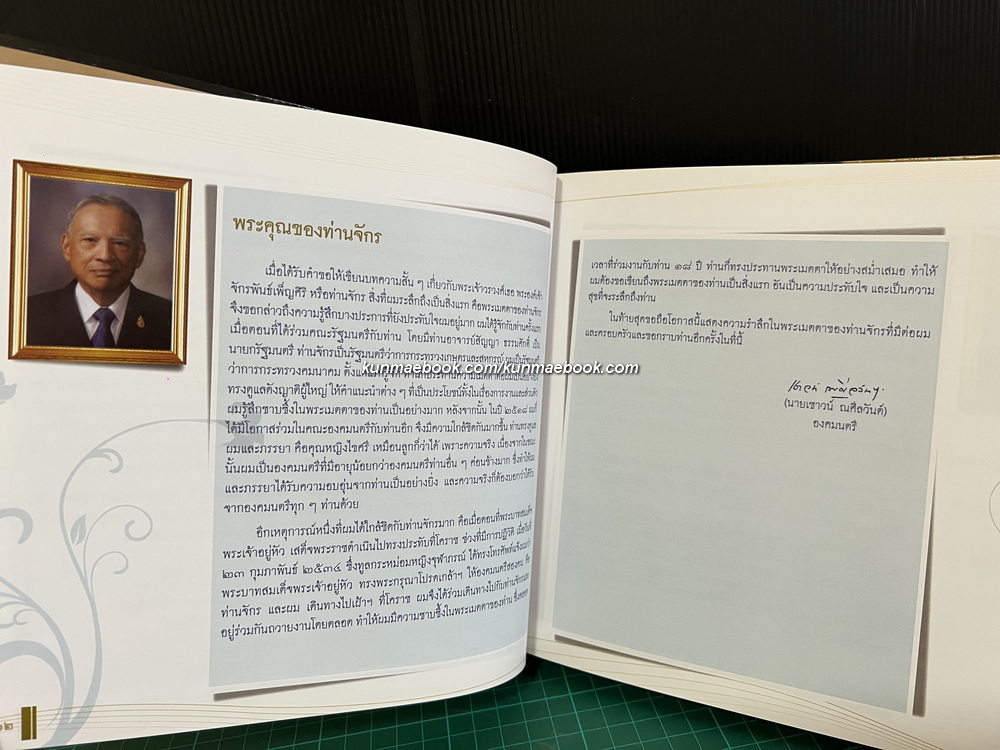 พระคุณของท่านจักร
เมื่อได้รับคำขอให้เขียนบทความสั้น ๆ เกี่ยวกับพระเจ้าวรวงศ์เธอ พระองค์เจ้า
จักรพันธ์เพ็ญศิริ หรือท่านจักร สิ่งที่ผมระลึกถึงเป็นสิ่งแรก คือพระเมตตาของท่านจักร
จึงขอกล่าวถึงความรู้สึกบางประการที่ยังประทับใจผมอยู่มาก ผมได้รู้จักกับท่านครั้งแรก
เมื่อตอนที่ได้ร่วมคณะรัฐมนตรีกับท่าน โดยมีท่านอาจารย์สัญญา ธรรมศักดิ์ เป็น
นายกรัฐมนตรี ท่านจักรเป็นรัฐมนตรีว่าการกระทรวงเกษตรและสหกรณ์ ผมเป็นรัฐมนตรี
ว่าการกระทรวงคมนาคม
kunmaebook.com/kunmaebook.com
ทรงดูแลดังญาติผู้ใหญ่ ให้คำแนะนำต่าง ๆ ที่เป็นประโยชน์ทั้งในเรื่องการงานและส่วนตัว
ผมรู้สึกซาบซึ้งในพระเมตตาของท่านเป็นอย่างมาก หลังจากนั้น ในปี ๒๕๑๘ ผมก็
ได้มีโอกาสร่วมในคณะองคมนตรีกับท่านอีก จึงมีความใกล้ชิดกันมากขึ้น ท่านทรงดูแล
ผมและภรรยา คือคุณหญิงไขศรี เหมือนลูกก็ว่าได้ เพราะความจริง เนื่องจากในขณะ
นั้นผมเป็นองคมนตรีที่มีอายุน้อยกว่าองคมนตรีท่านอื่น ๆ ค่อนข้างมาก ซึ่งทำให้ผม
และภรรยาได้รับความอบอุ่นจากท่านเป็นอย่างยิ่ง และความจริงก็ต้องบอกว่าได้รับ
จากองคมนตรีทุก ๆ ท่านด้วย
อีกเหตุการณ์หนึ่งที่ผมได้ใกล้ชิดกับท่านจักรมาก คือเมื่อตอนที่พระบาทสมเด็จ
พระเจ้าอยู่หัว เสด็จพระราชดำเนินไปทรงประทับที่โคราช ช่วงที่มีการปฏิวัติ เมื่อวันที่
๒๓ กุมภาพันธ์ ๒๕๓๔ ซึ่งทูลกระหม่อมหญิงจุฬาภรณ์ ได้ทรงโทรศัพท์แจ้งผมว่า
พระบาทสมเด็จพระเจ้าอยู่หัว ทรงพระกรุณาโปรดเกล้าฯ ให้องคมนตรีสองคน คือ
ท่านจักร และผม เดินทางไปเฝ้าฯ ที่โคราช ผมจึงได้ร่วมเดินทางไปกับท่านจักร
อยู่ร่วมกันถวายงานโดยตลอด ทำให้ผมมีความซาบซึ้งในพระเมตตาของท่าน ซึ่งตลอด
๑๒
เวลาที่ร่วมงานกับท่าน ๑๘ ปี ท่านก็ทรงประทานพระเมตตาให้อย่างสม่ำเสมอ ทำให้
ผมต้องขอเขียนถึงพระเมตตาของท่านเป็นสิ่งแรก อันเป็นความประทับใจ และเป็นความ
สุขที่จะระลึกถึงท่าน
ในท้ายสุดขอถือโอกาสนี้แสดงความรำลึกในพระเมตตาของท่านจักรที่มีต่อผม
และครอบครัวและขอกราบท่านอีกครั้งในที่นี้
(นายเชาวน์ ณศีลวันต์)
องคมนตรี